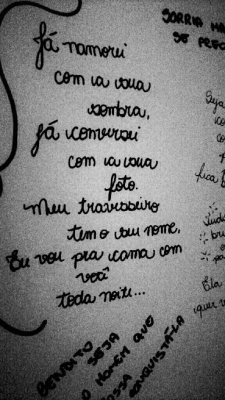 Já namorei
com a sua
sombra,
Já conversei
com a sua
foto.
Meu travesseiro
tem o seu nome,
Eu vou pra cama com
você
toda noite...
SORRIA
SE
Seja
fica
Tudo
Ela
quer
BENDITO SEJA
O HOMEM QUE
POSSA
CONQUISTÁ-LA